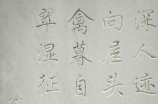 深人迹
向崖头
禽暮自
翠湿征